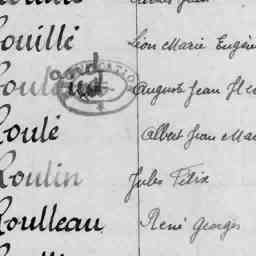 ouillé Léon Marie Eugèn
Auguste Jean
oulé Albert Jean Ma
Roulin Jules Félix
Roulleau René Georges